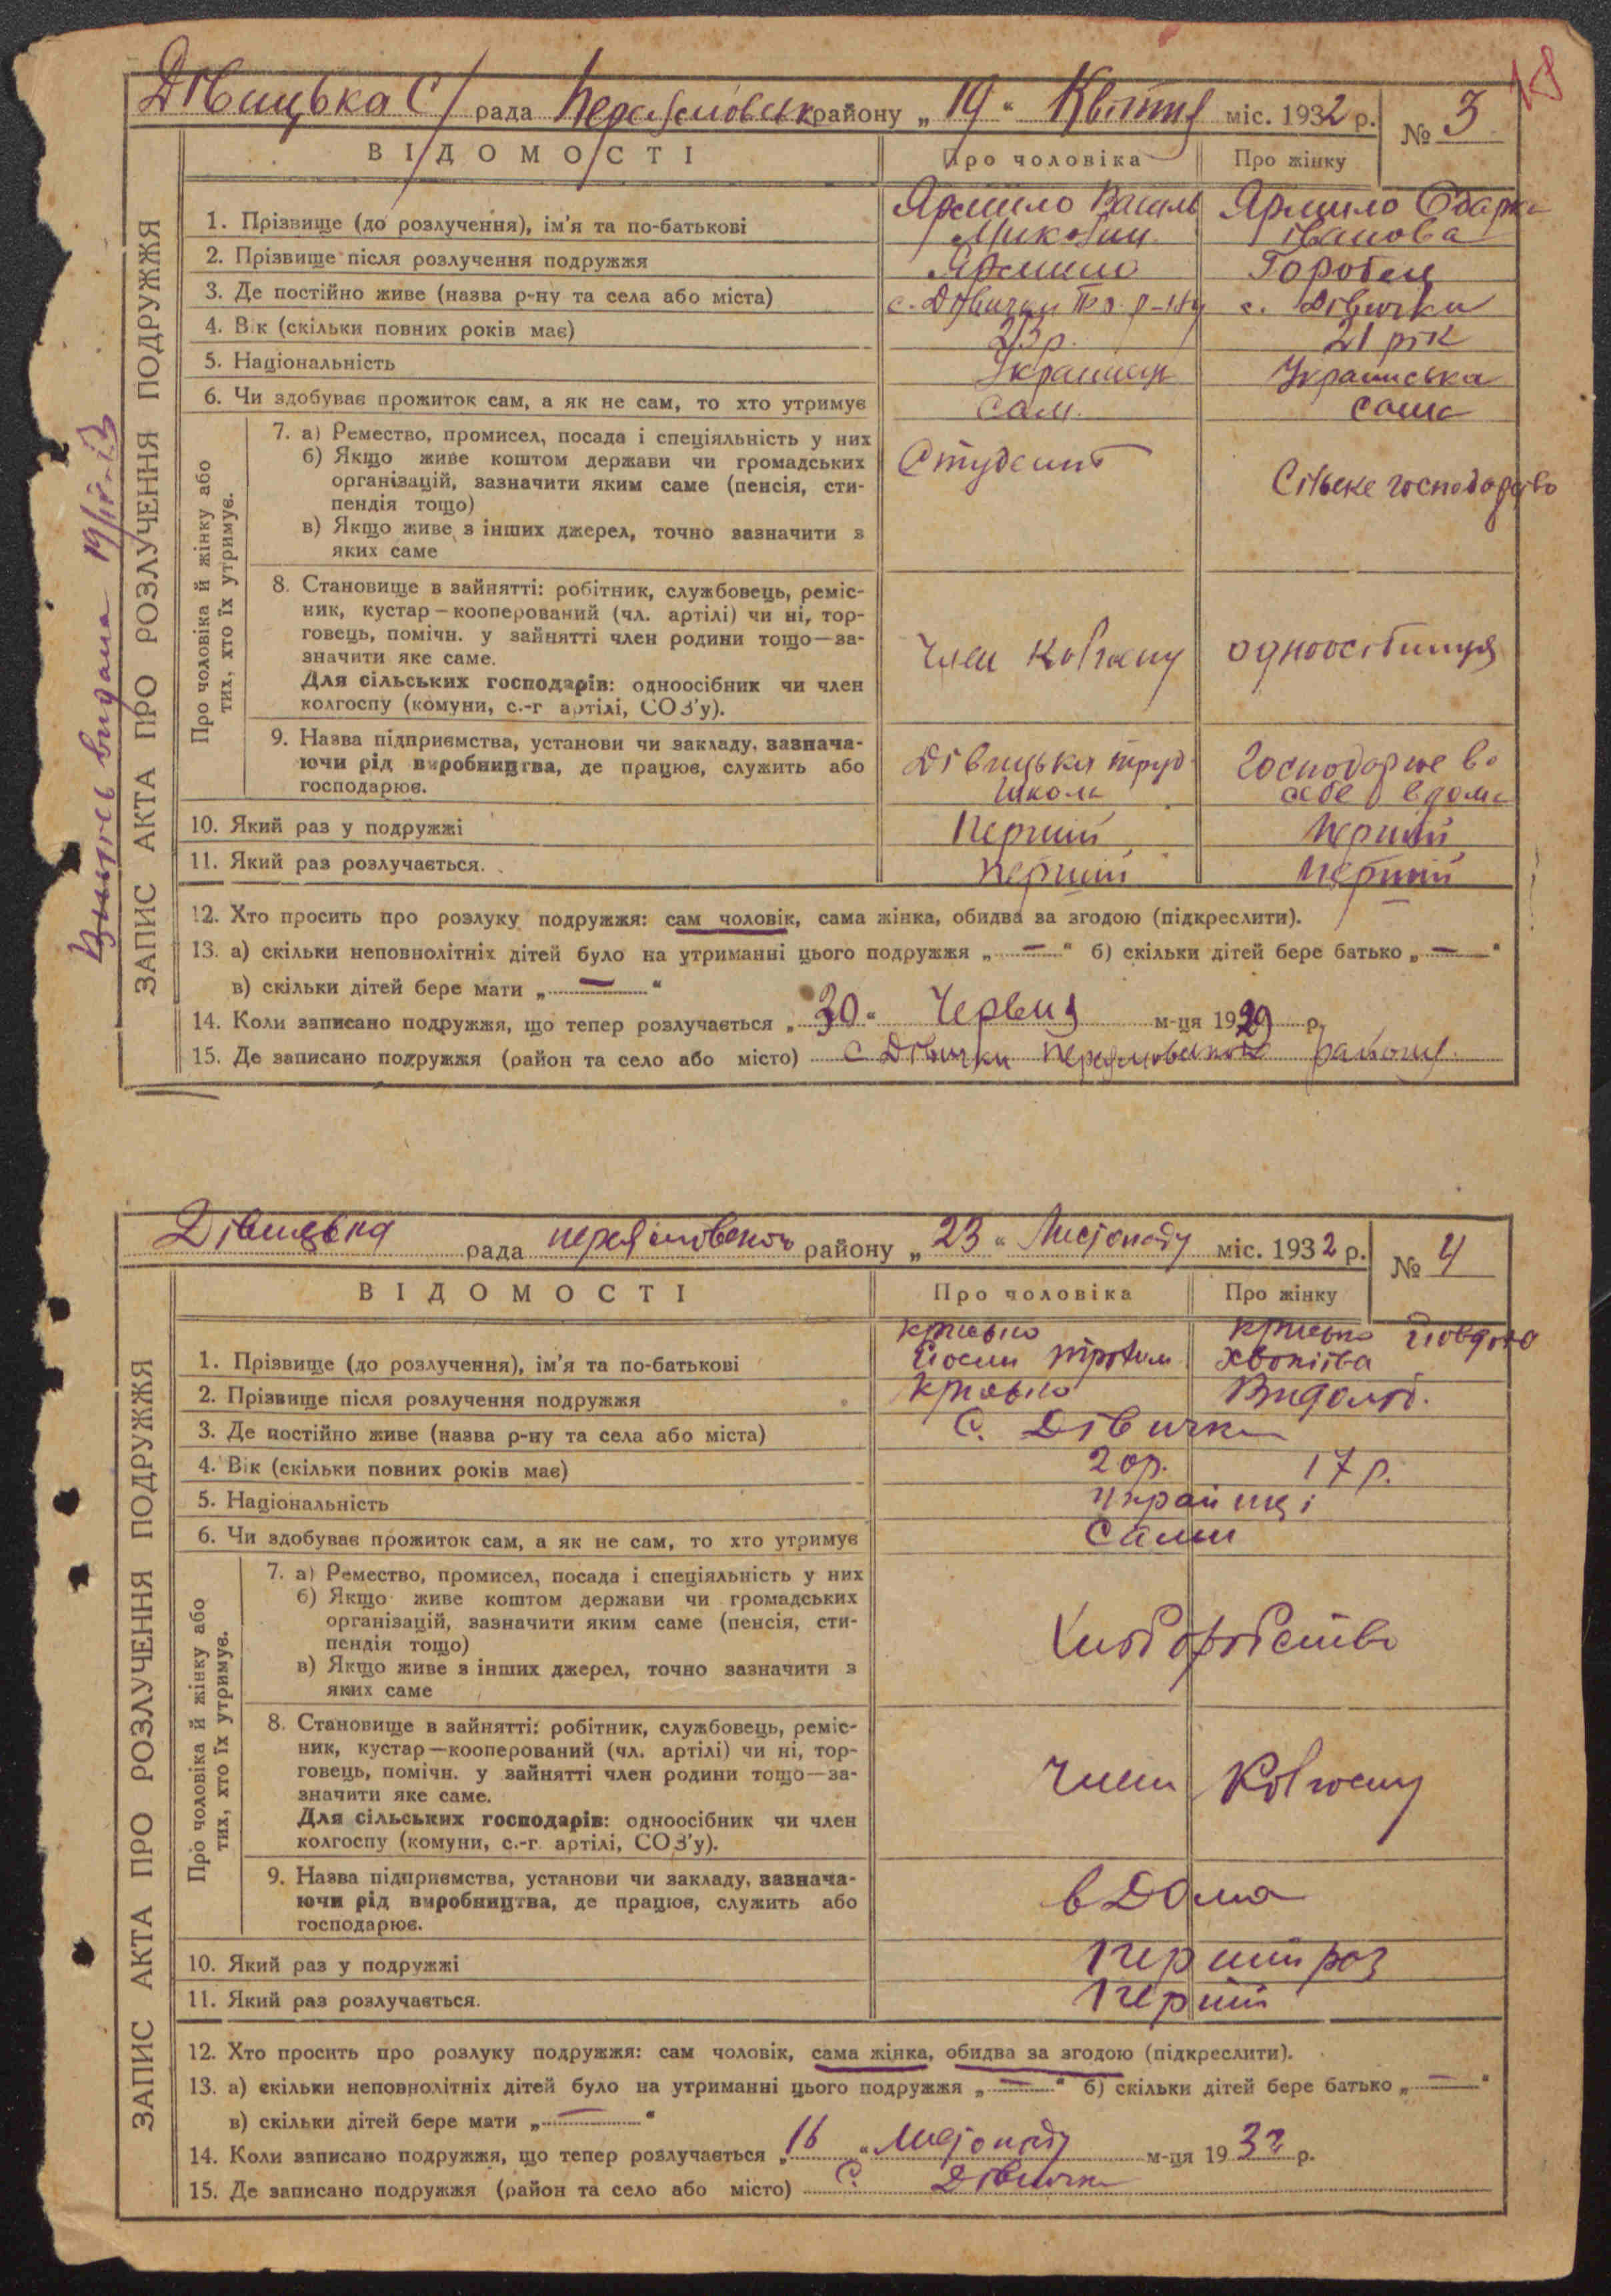 18
Дівицька С/ рада Переяславськ району „19“ Квітня міс. 1932 р. № 3
ВІДОМОСТІ Про чоловіка Про жінку
1. Прізвище (до розлучення), ім'я та по-батькові Ярмило Василь Ярмило Одарка
Іванова
2. Прізвище після розлучення подружжя Ярмило Горобец
3. Де постійно живе (назва р-ну та села або міста) с. Дівички с. Дівички
4. Вік (скільки повних років має) 23 р. 21 рік
5. Національність Українец Украинська
6. Чи здобуває прожиток сам, а як не сам, то хто утримує Сам. сама
Про чоловіка й жінку або
тих, хто їх утримує.
7. а) Ремество, промисел, посада і спеціяльність у них
б) Якщо живе коштом держави чи громадських Студент
організацій, зазначити яким саме (пенсія, сти- Сільске господарство
пендія тощо)
в) Якщо живе з інших джерел, точно зазначити з
яких саме
8. Становище в зайнятті: робітник, службовець, реміс-
ник, кустар—кооперований (чл. артілі) чи ні, тор-
говець, помічн. у зайнятті член родини тощо—за-
значити яке саме. Член колгоспу одноосібниця
Для сільських господарів: одноосібник чи член
колгоспу (комуни, с.-г артілі, СОЗ'у).
9. Назва підприємства, установи чи закладу, зазнача-
ючи рід виробництва, де працює, служить або Дівицька труд
господарює. школа
10. Який раз у подружжі Перший Перший
11. Який раз розлучається. Перший Перший
12. Хто просить про розлуку подружжя: сам чоловік, сама жінка, обидва за згодою (підкреслити).
13. а) скільки неповнолітніх дітей було на утриманні цього подружжя „—“ б) скільки дітей бере батько „—“
в) скільки дітей бере мати „—“
14. Коли записано подружжя, що тепер розлучається „30“ Червня м-ця 1929 р.
15. Де записано подружжя (район та село або місто) с Дівички району
ЗАПИС АКТА ПРО РОЗЛУЧЕННЯ ПОДРУЖЖЯ
видана 19/IV-
Дівицька рада району „23“ Листопаду міс. 1932 р. № 4
ВІДОМОСТІ Про чоловіка Про жінку
1. Прізвище (до розлучення), ім'я та по-батькові
2. Прізвище після розлучення подружжя
3. Де постійно живе (назва р-ну та села або міста) С. Дівички
4. Вік (скільки повних років має) 20р. 17 р.
5. Національність Українці
6. Чи здобуває прожиток сам, а як не сам, то хто утримує Сами
Про чоловіка й жінку або
тих, хто їх утримує.
7. а) Ремество, промисел, посада і спеціяльність у них
б) Якщо живе коштом держави чи громадських
організацій, зазначити яким саме (пенсія, сти-
пендія тощо) Хліборобство
в) Якщо живе з інших джерел, точно зазначити з
яких саме
8. Становище в зайнятті: робітник, службовець, реміс-
ник, кустар—кооперований (чл. артілі) чи ні, тор-
говець, помічн. у зайнятті член родини тощо—за-
значити яке саме. Член Колгоспу
Для сільських господарів: одноосібник чи член
колгоспу (комуни, с.-г артілі, СОЗ'у).
9. Назва підприємства, установи чи закладу, зазнача-
ючи рід виробництва, де працює, служить або в Дома
господарює.
10. Який раз у подружжі Перший раз
11. Який раз розлучається. Перший
12. Хто просить про розлуку подружжя: сам чоловік, сама жінка, обидва за згодою (підкреслити).
13. а) скільки неповнолітніх дітей було на утриманні цього подружжя „—“ б) скільки дітей бере батько „—“
в) скільки дітей бере мати „—“
14. Коли записано подружжя, що тепер розлучається „16“ Листопаду м-ця 1932 р.
15. Де записано подружжя (район та село або місто) С. Дівички
ЗАПИС АКТА ПРО РОЗЛУЧЕННЯ ПОДРУЖЖЯ